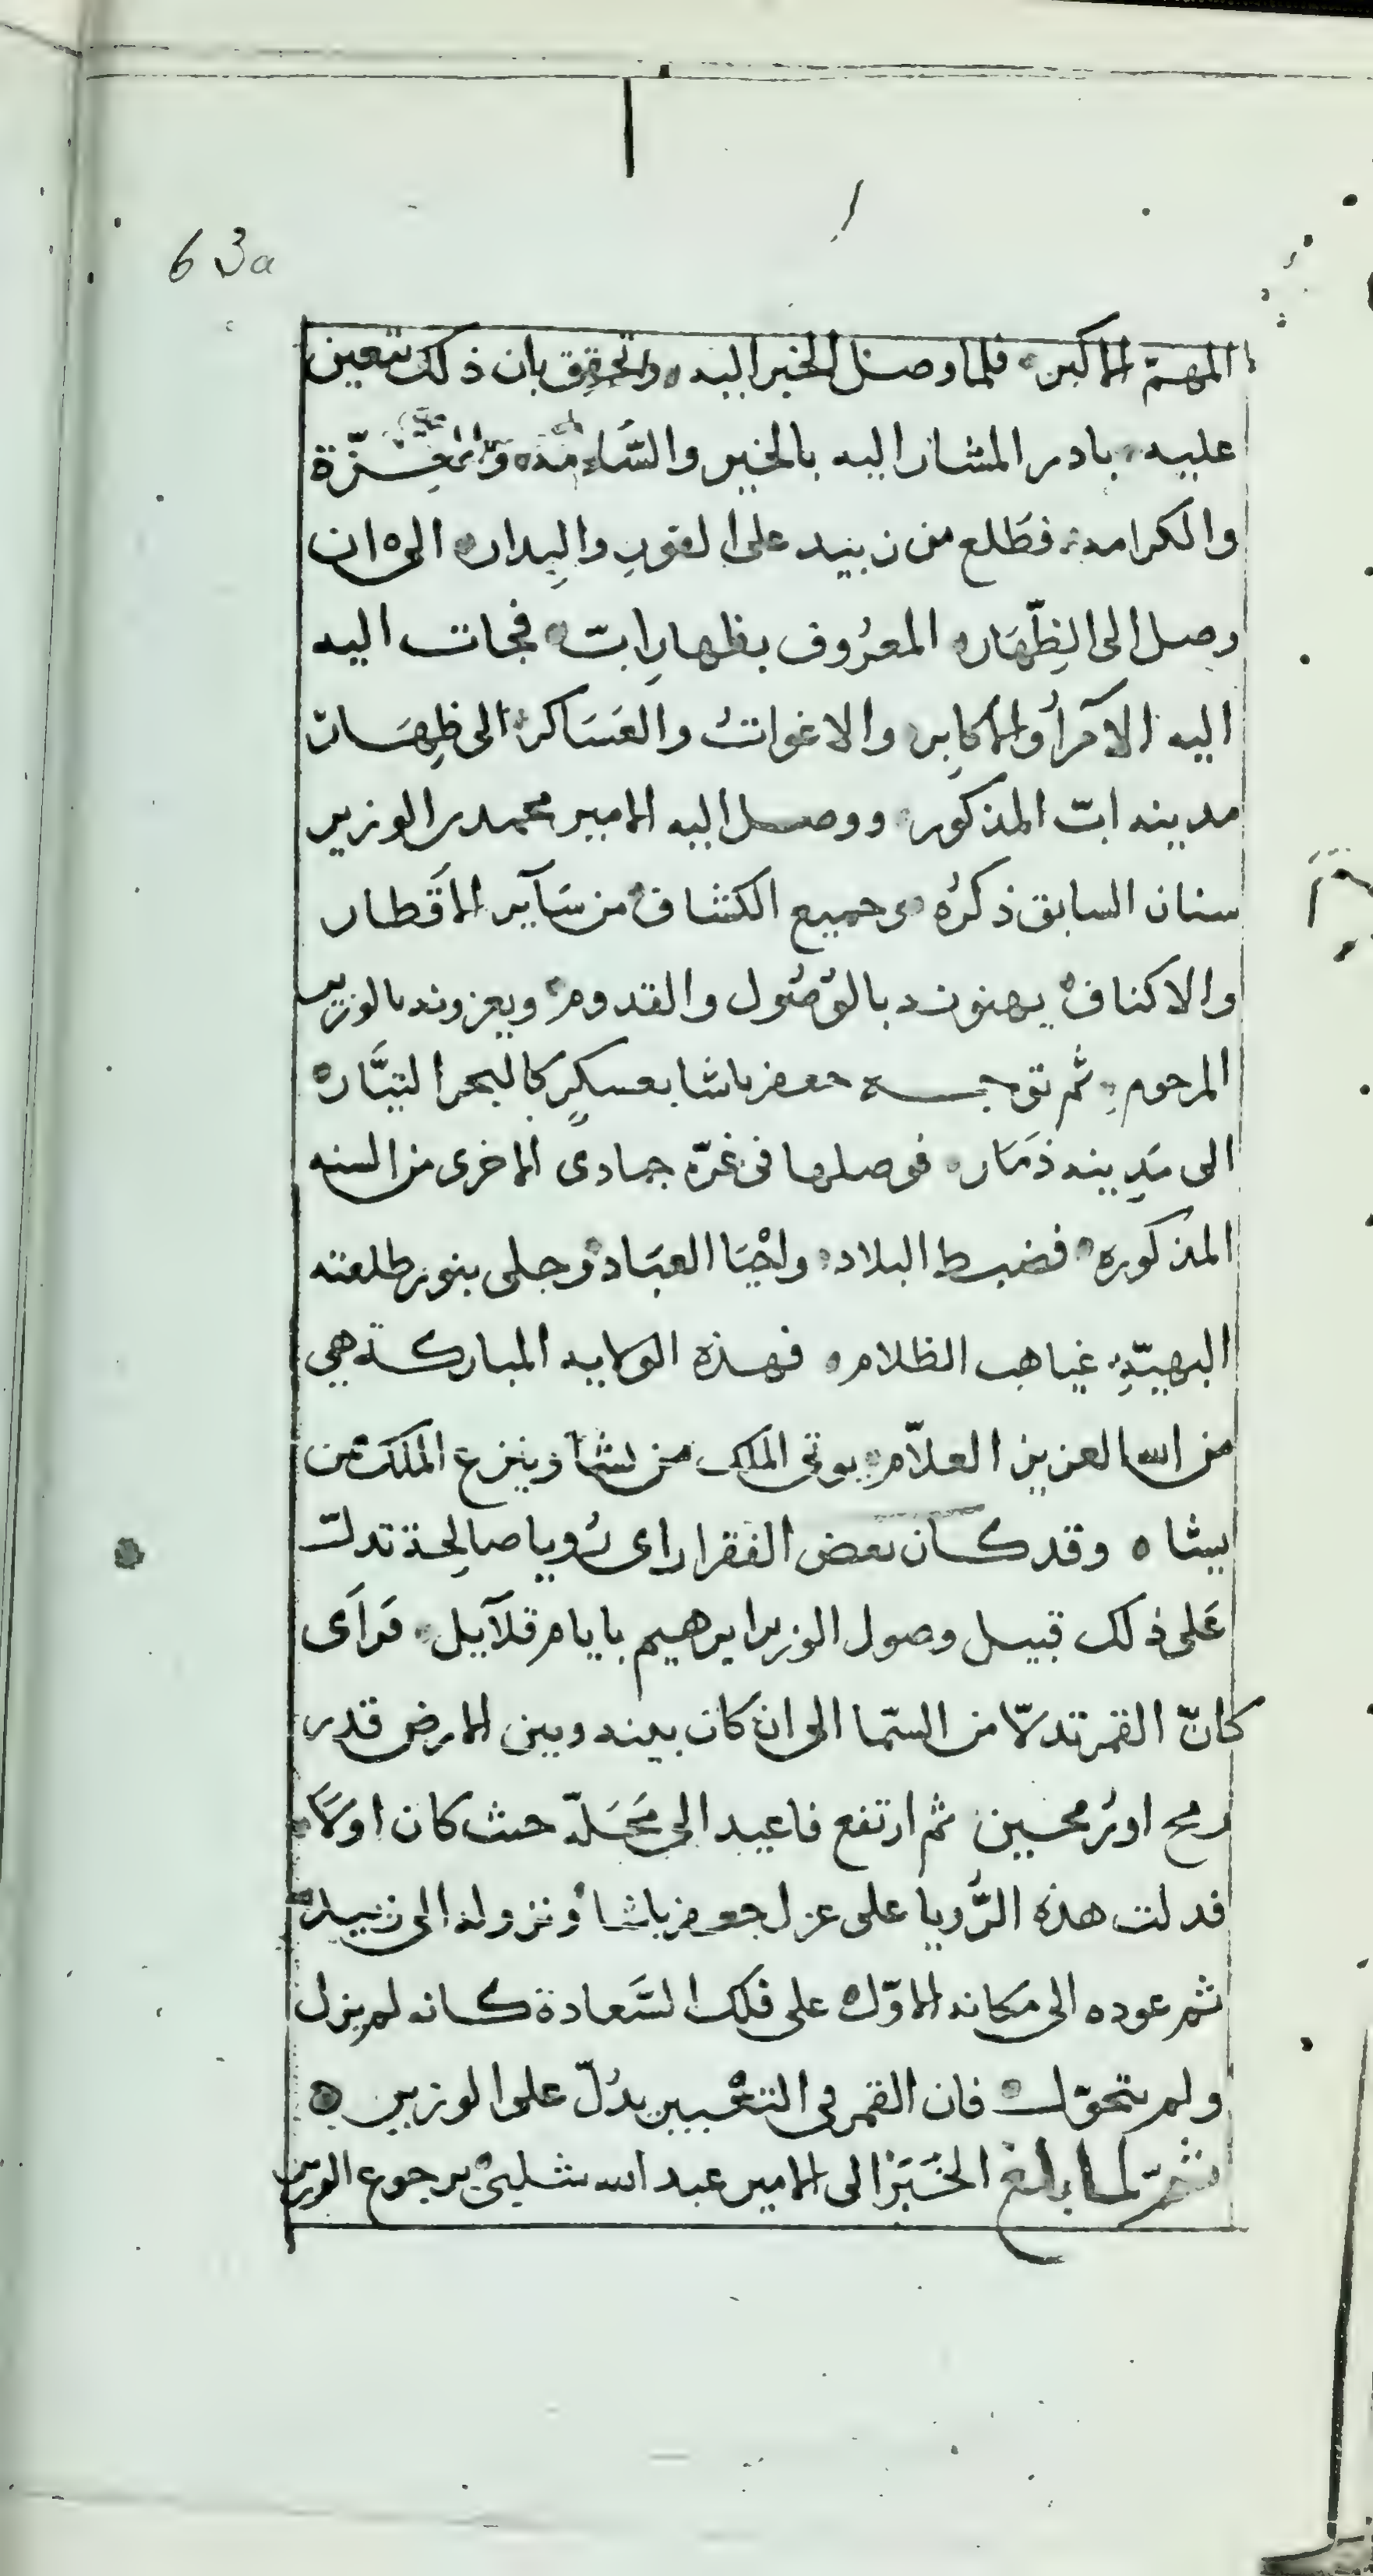 63a
المهمّ الاكبر فلما وصل الخبر اليه وتحقق بان ذلك تتعين
عليه بادر المشار اليه بالخير والسَّلامه والعِزّة
والكرامه فطَلع من زبيد على الفورِ والبِدار الى ان
وصل الى الظِّهَار المعرُوف بظهارِ ابّ فجات اليه
اليه الاَمرآُ والاكابِر والاغواتُ والعَسَاكر الى ظِهَار
مدينه ابّ المذكور ووصل اليه الامير محمد بن الوزير
سنان السابق ذكرُه وجميع الكشاف من سَآير الاَقطار
والاكناف يهنونه بالوُصُول والقدوم ويعزونه بالوزير
المرحوم ثم توجه جعفر باشا بعسكرٍ كالبحر التيَّار
الى مَدِينه ذمَار فوصلها فى غرّة جمادى الاخرى من السنه
المذكوره فضبط البلاد واحْيَا العبَاد وجلى بنور طلعته
البهيّهِ غياهب الظلام فهذه الولايه المباركة هى
من الله العزيز العلاّم يوتى الملك من يشآ وينزع الملك من
يشا ٥ وقد كان بعض الفقرا راى رُويا صالِحة تدلت
عَلى ذلك قبيل وصول الوزير ابرهيم بايام قلآيل فراَى
كانّ القمر تدلاّ من السّما الى ان كان بينه وبين الارض قدر
رمح او رُمحين ثم ارتفع فاعيد الى مَحَلّه حيث كان اولاً
فدلت هذه الرُّويا على عزل جعفر باشا ونزوله الى زبيد
ثم عوده الى مكانه الاوّل على فلك السَّعادة كانه لم يزل
ولم يتحوّل فان القمر فى التعْبير يدُلّ على الوزير ٥
ثمّ لما بلغ الخَبَرُ الى الامير عبد الله شلبى برجوع الوزير